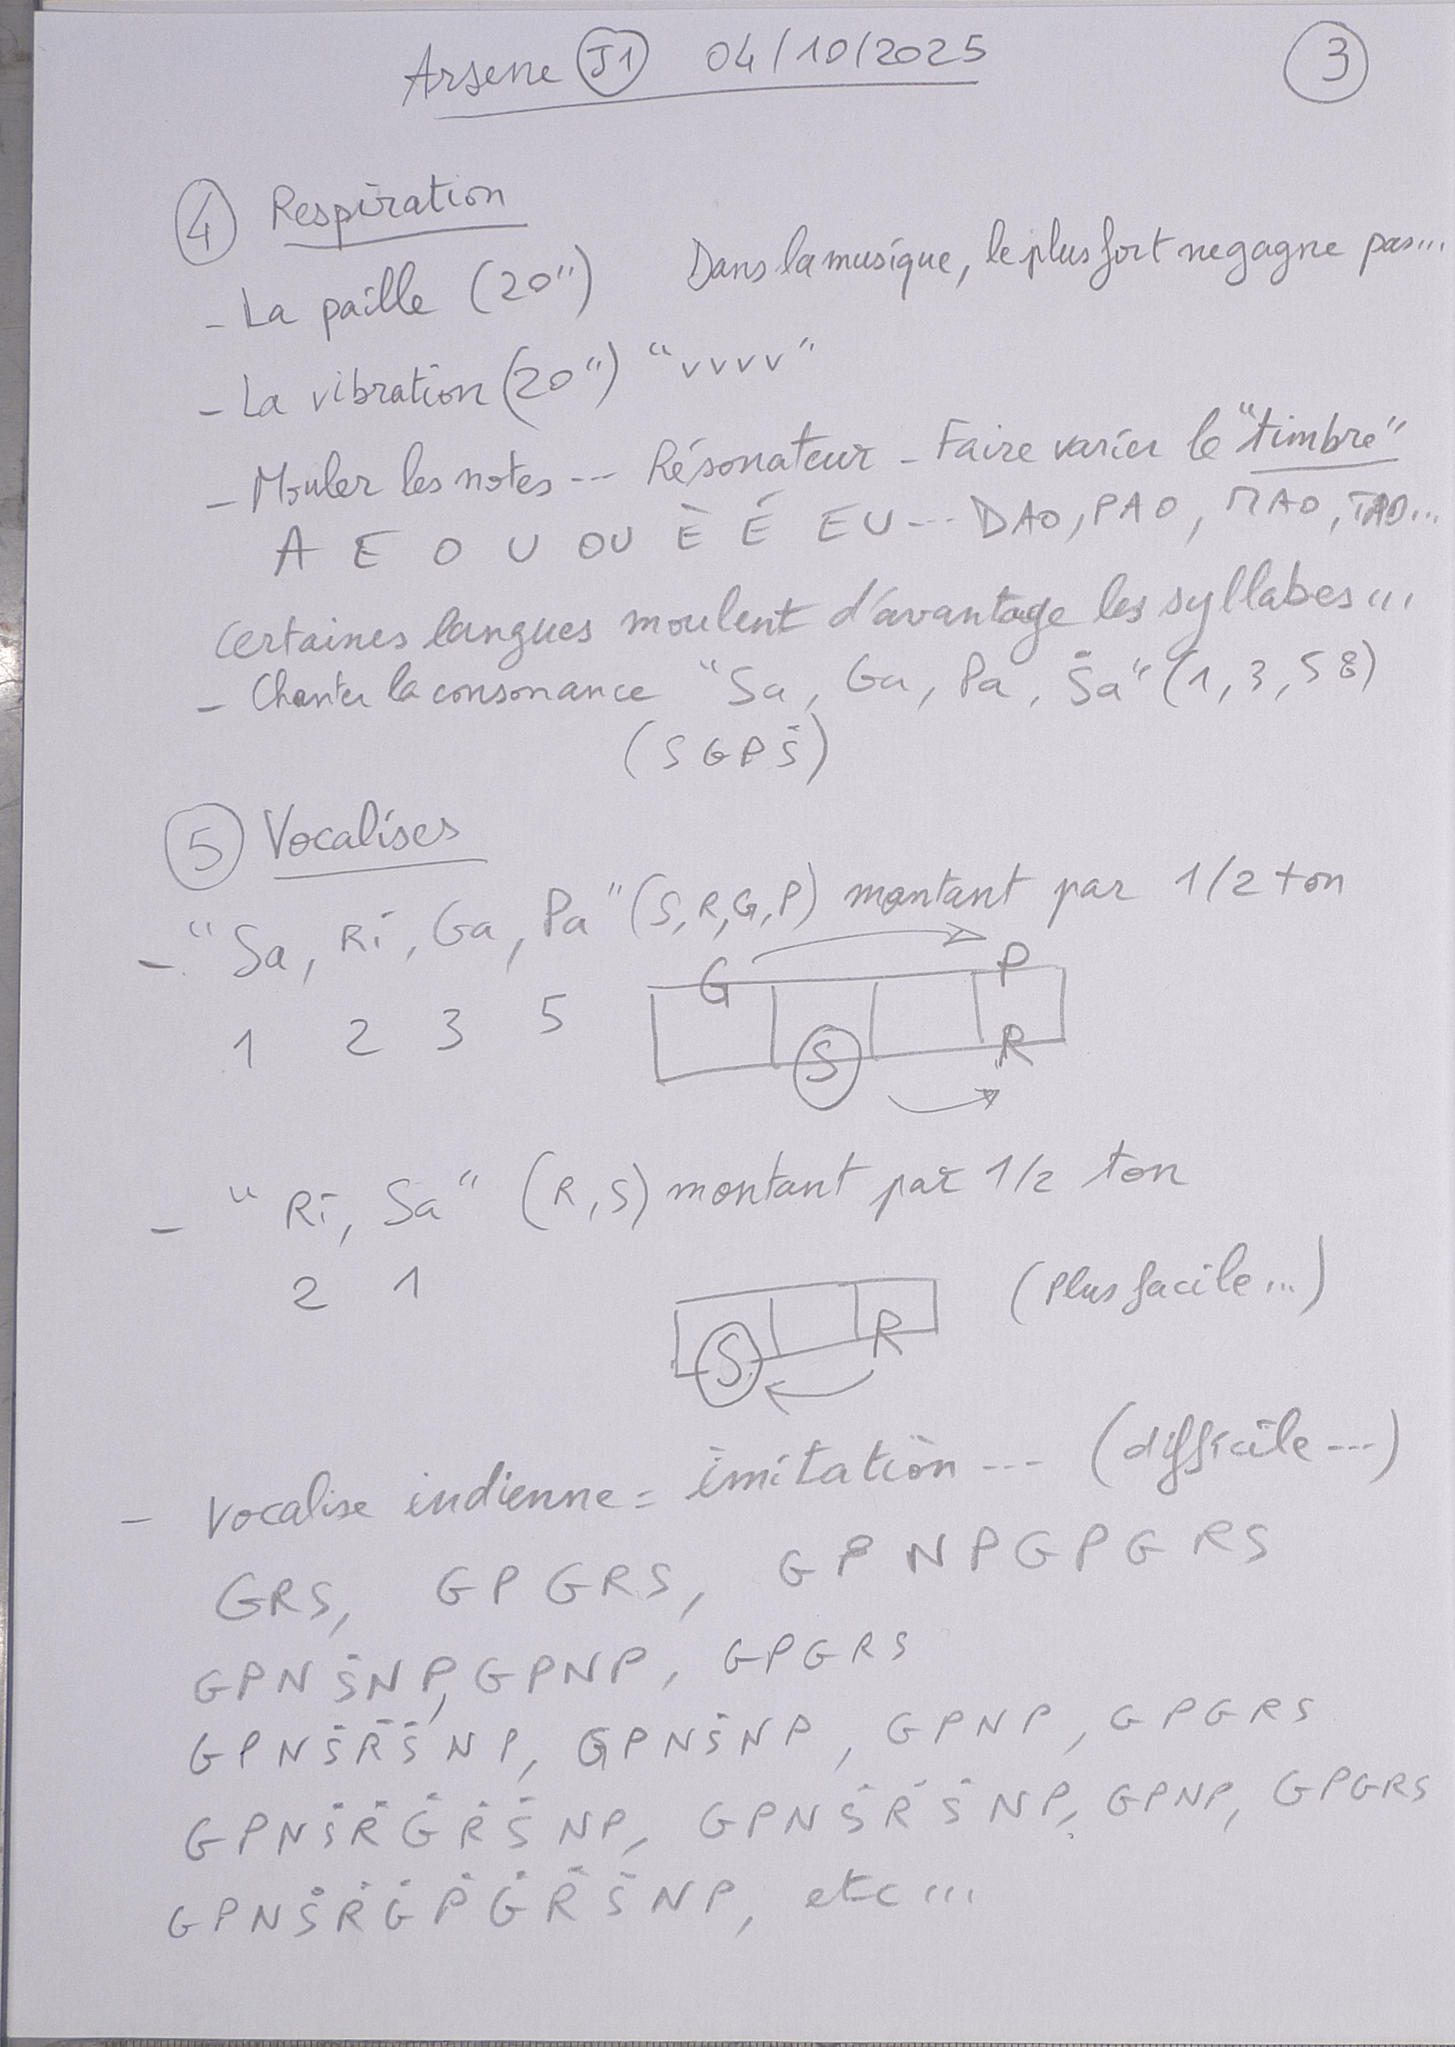 Arsene J1 04/10/2025
3
4 Respiration
- La paille (20") Dans la musique, le plus fort ne gagne pas...
- La vibration (20") "vvvv"
- Mouler les notes... Résonateur - Faire varier le "timbre"
A E O U OU È É EU... DAO, PAO, MAO, TAO...
Certaines langues moulent d'avantage les syllabes...
- Chanter la consonance "Sa, Ga, Pa, Ṡa" (1, 3, 5 8)
(S G P Ṡ)
5 Vocalises
- "Sa, Ri, Ga, Pa" (S, R, G, P) montant par 1/2 ton
1 2 3 5
G P
S R
- "Ri, Sa" (R, S) montant par 1/2 ton
2 1
(Plus facile...)
S R
- Vocalise indienne = imitation... (difficile...)
GRS, GPGRS, GPNPGPGRS
GPNṠNP, GPNP, GPGRS
GPNṠṘṠNP, GPNṠNP, GPNP, GPGRS
GPNṠṘĠṘṠNP, GPNṠṘṠNP, GPNP, GPGRS
GPNṠṘĠṖĠṘṠNP, etc...